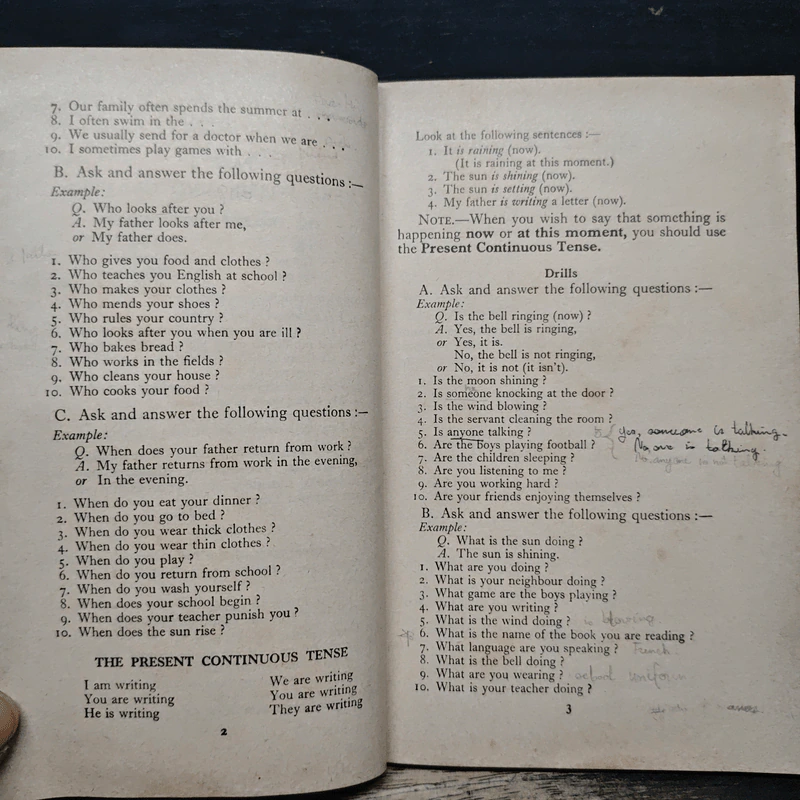 7. Our family often spends the summer at . . .
8. I often swim in the . . .
9. We usually send for a doctor when we are . . .
10. I sometimes play games with . . .
B. Ask and answer the following questions :—
Example:
Q. Who looks after you ?
A. My father looks after me,
or My father does.
1. Who gives you food and clothes ?
2. Who teaches you English at school ?
3. Who makes your clothes ?
4. Who mends your shoes ?
5. Who rules your country ?
6. Who looks after you when you are ill ?
7. Who bakes bread ?
8. Who works in the fields ?
9. Who cleans your house ?
10. Who cooks your food ?
C. Ask and answer the following questions :—
Example:
Q. When does your father return from work ?
A. My father returns from work in the evening,
or In the evening.
1. When do you eat your dinner ?
2. When do you go to bed ?
3. When do you wear thick clothes ?
4. When do you wear thin clothes ?
5. When do you play ?
6. When do you return from school ?
7. When do you wash yourself ?
8. When does your school begin ?
9. When does your teacher punish you ?
10. When does the sun rise ?
THE PRESENT CONTINUOUS TENSE
I am writing We are writing
You are writing You are writing
He is writing They are writing
2
Look at the following sentences :—
1. It is raining (now).
(It is raining at this moment.)
2. The sun is shining (now).
3. The sun is setting (now).
4. My father is writing a letter (now).
NOTE.—When you wish to say that something is
happening now or at this moment, you should use
the Present Continuous Tense.
Drills
A. Ask and answer the following questions :—
Example:
Q. Is the bell ringing (now) ?
A. Yes, the bell is ringing,
or Yes, it is.
No, the bell is not ringing,
or No, it is not (it isn't).
1. Is the moon shining ?
2. Is someone knocking at the door ?
3. Is the wind blowing ?
4. Is the servant cleaning the room ?
5. Is anyone talking ? Yes, someone is talking.
6. Are the boys playing football ? No, one is talking.
7. Are the children sleeping ?
8. Are you listening to me ?
9. Are you working hard ?
10. Are your friends enjoying themselves ?
B. Ask and answer the following questions :—
Example:
Q. What is the sun doing ?
A. The sun is shining.
1. What are you doing ?
2. What is your neighbour doing ?
3. What game are the boys playing ?
4. What are you writing ?
5. What is the wind doing ? is blowing.
6. What is the name of the book you are reading ?
7. What language are you speaking ? French
8. What is the bell doing ?
9. What are you wearing ? school uniform
10. What is your teacher doing ?
3